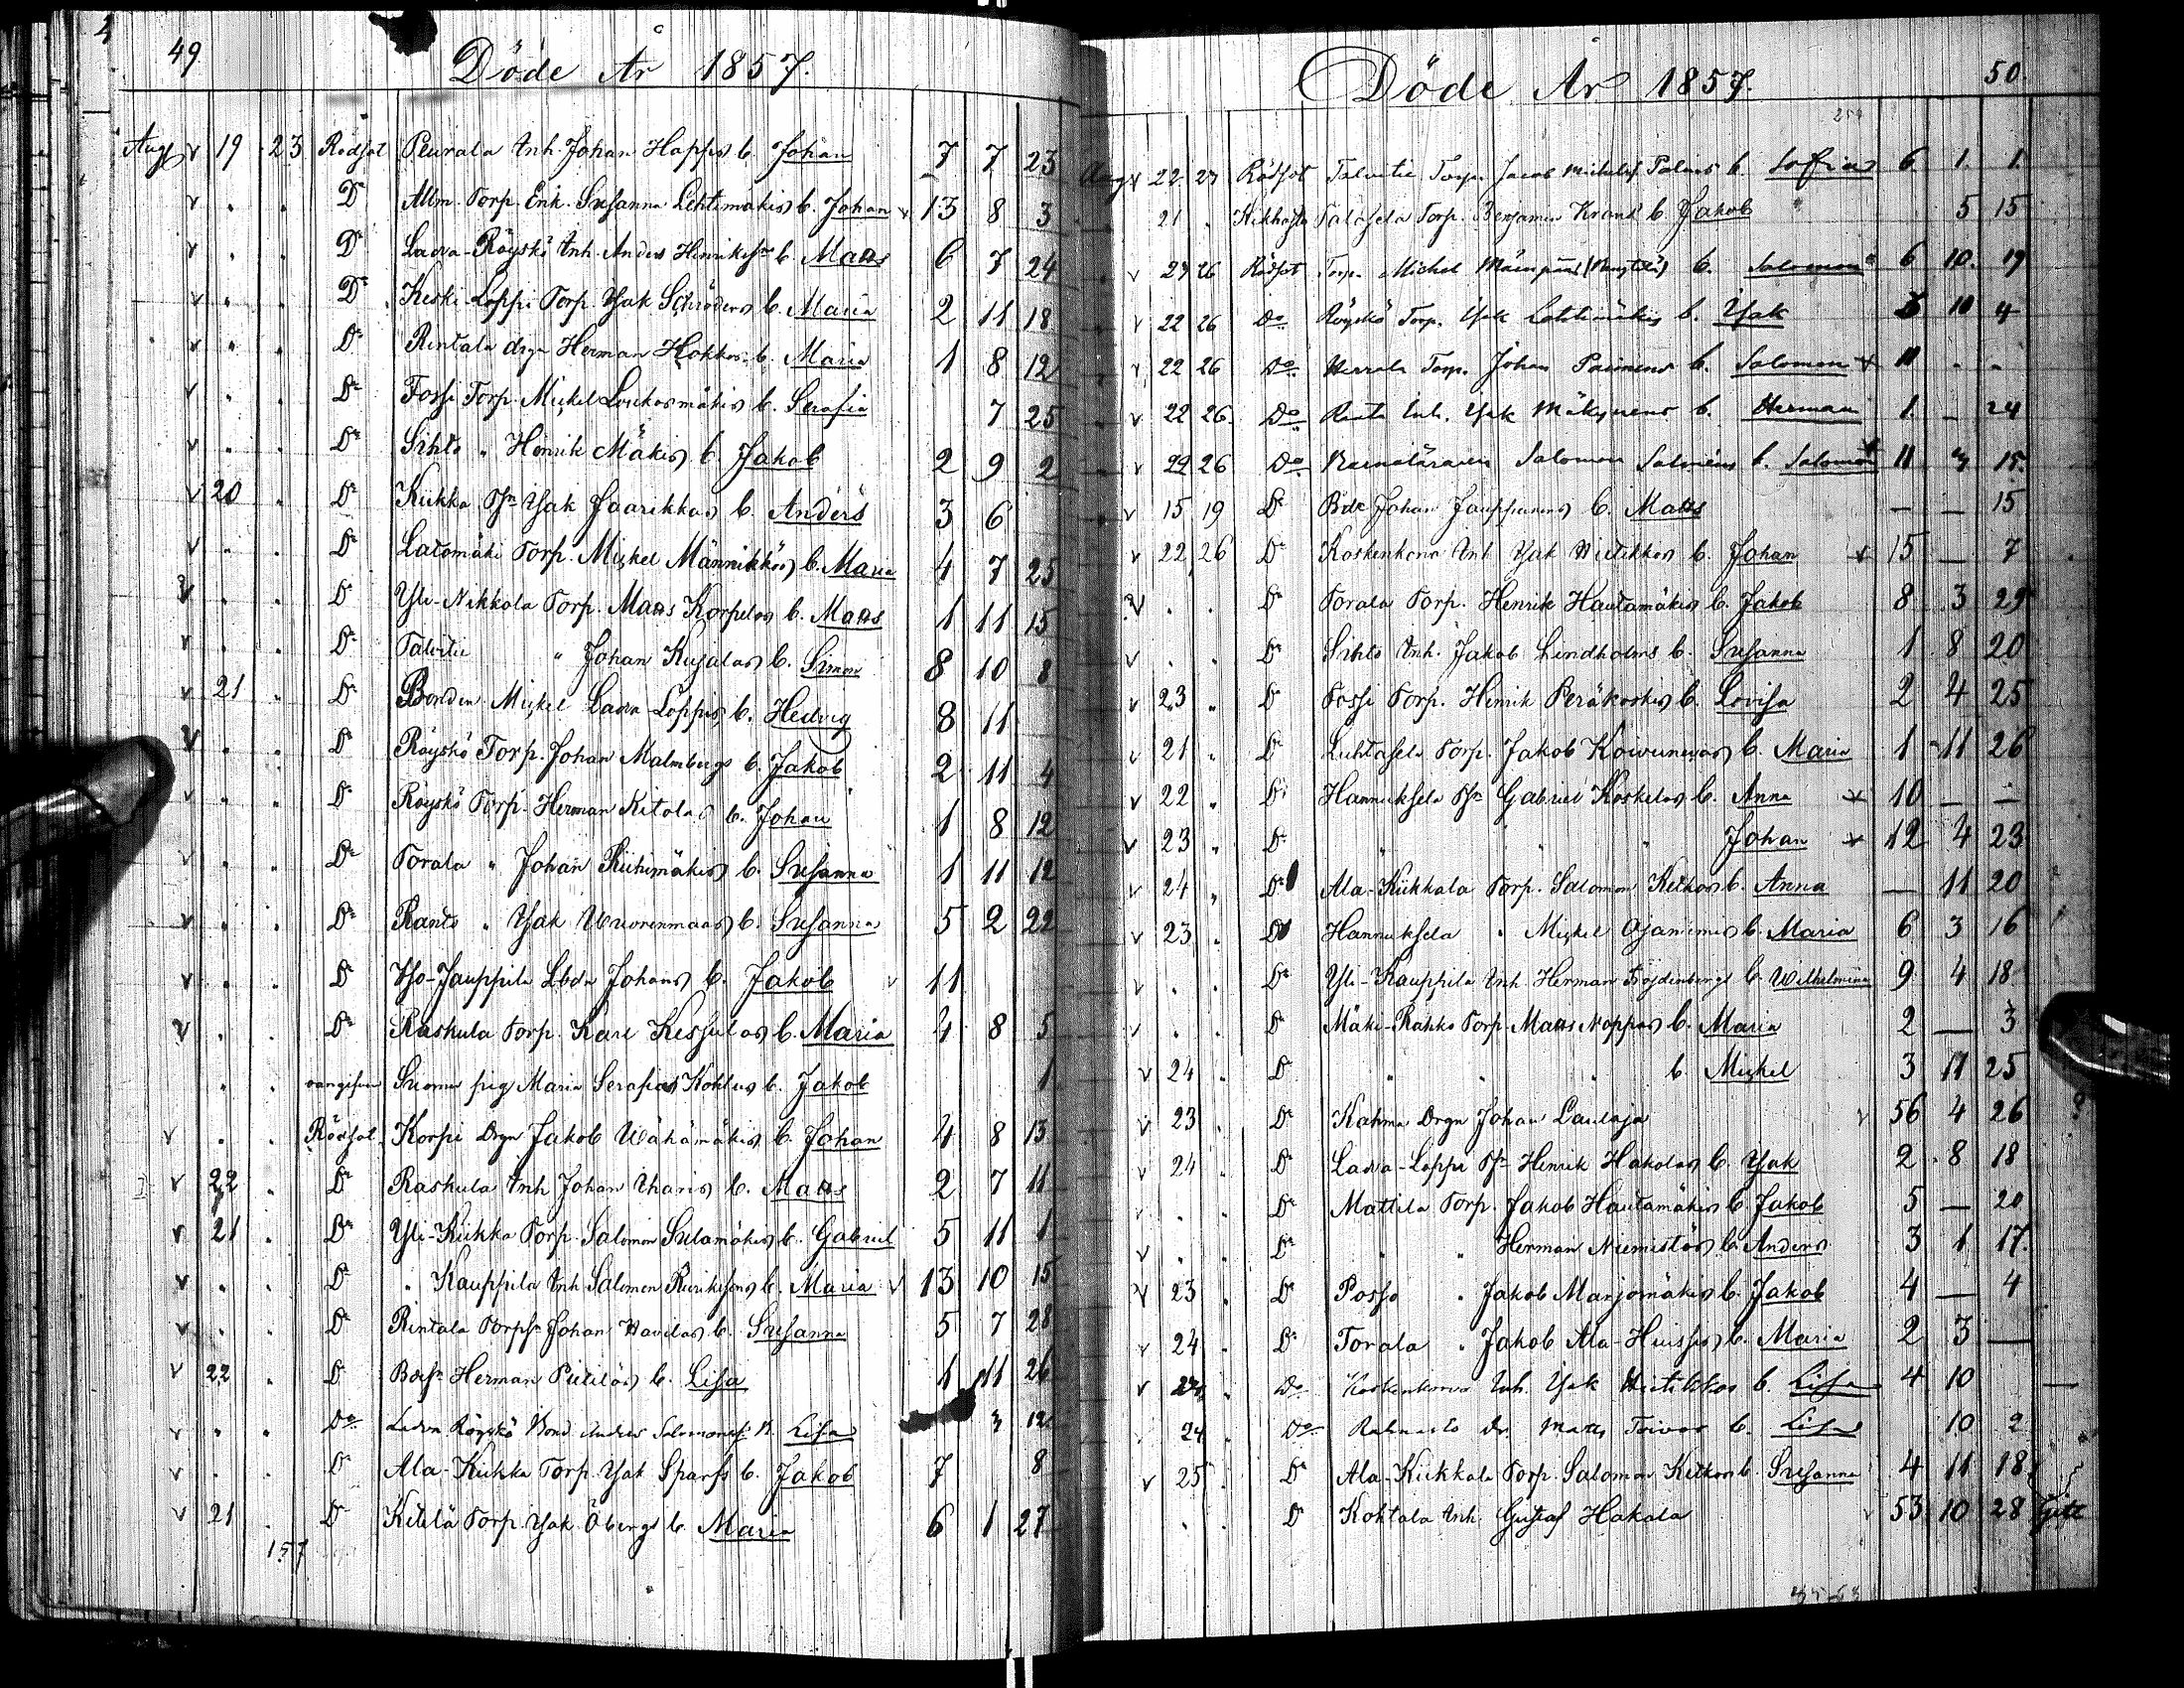 49.
Döde År 1857.
Aug v 19 23 Rödsot Peurala Inh. Johan Happs b. Johan 7 7 23
v " " Do Allm. Torp. Enk. Susanna Lehtimäkis b. Johan v 13 8 3
v " " Do Laova-Röyskö Inh. Anders Henrikss. b. Matts 6 7 24
v " " Do Keski-Loppi Torp. Isak Schröders b. Maria 2 11 18
v " " Do Rintala drgn Herman Hokkas b. Maria 1 8 12
v " " Do Fossi Torp. Mickel Loukasmäkis b. Serafia 7 25
v " " Do Sihto " Henrik Mäkis b. Jakob 2 9 2
v 20 " Do Kiikka Isak Jaarikkas b. Anders 3 6
v " " Do Latomäki Torp. Mickel Männikkös b. Maria 4 7 25
v " " Do Yli-Nikkola Torp. Matts Korpelas b. Matts 1 11 15
v " " Do Talvitie " Johan Kujalas b. Simon 8 10 8
v 21 " Do Bonden Mickel Laova-Loppis b. Hedvig 8 11
v " " Do Röyskö Torp. Johan Malmbergs b. Jakob 2 11 4
v " " Do Röyskö Torp. Herman Kitolas b. Johan 1 8 12
v " " Do Torala " Johan Riihimäkis b. Susanna 1 11 12
v " " Do Ranto " Isak Wuorenmaas b. Susanna 5 2 22
v " " Do Iso-Jauppila Lbdn Johans b. Jakob v 11
v " " Do Raskula Torp. Karl Kessulas b. Maria 4 8 5
" " Suomu pig Maria Serafias Kohlus b. Jakob 1
v " " Rödsot Korpi Drgn Jakob Wähämäkis b. Johan 4 8 13
v 22 " Do Raskula Inh Johan b. Matts 2 7 11
v 21 " Do Yli-Kiikka Torp. Salomon Sulamäkis b. Gabriel 5 11 1
v " " Do " Kauppila Inh Salomon b. Maria v 13 10 15
v " " Do Rintala Johan Havilas b. Susanna 5 7 28
v 22 " Do Herman Pietiläs b. Lisa 1 11 26
v " " Do Röyskö Bond. Anders Lisa 3 12
v " " Do Ala-Kiikka Torp. Isak Sparfs b. Jakob 7 8
v 21 " Do Kitilä Torp. Isak Öbergs b. Maria 6 1 27
157
Döde År 1857.
50.
254
Aug v 22 27 Rödsot Talvitie Torp. Jacob Michelss. b. Sofia 6 1 1
21 " Kikhosta Torp. Benjamin Krans b. Jakob 5 15
v 23 26 Rödsot Torp. Michel b. Salomon 6 10 19
v 22 26 Do Röyskö Torp. Isak Lehtimäkis b. Isak 10 4
v 22 26 Do Torp. Johan b. Salomon v 11 " "
v 22 26 Do Inh. Isak Mäkynens b. Herman 1 — 24
v 22 26 Do Salomon b. Salomon 11 3 15
v 15 19 Do Johan Jauppanens b. Matts — — 15
v 22 26 Do Koskenkorva Inh Isak Wiitikkos b. Johan v 15 — 7
v " " Do Torala Torp. Henrik Hautamäkis b. Jakob 8 3 29
v " " Do Sihto Inh. Jakob Lindholms b. Susanna 1 8 20
v 23 " Do Fossi Torp. Henrik Peräkoskis b. Lovisa 2 4 25
v 21 " Do Luhtasela Torp. Jakob Koivunevas b. Maria 1 11 26
v 22 " Do Hannuksela Gabriel Koskelas b. Anna v 10 — —
v 23 " Do " " " Johan v 12 4 23
v 24 " Do Ala-Kiikkala Torp. Salomon Ketkas b. Anna — 11 20
v 23 " Do Hannuksela " Mickel Ojaniemis b. Maria 6 3 16
v " " Do Yli-Kauppila Inh. Herman Fröjdenbergs b. Wilhelmina 9 4 18
v " " Do Mäki-Rahko Torp. Matts Noppas b. Maria 2 — 3
v 24 " Do " " " b. Mickel 3 11 25
v 23 " Do Kahma Drgn Johan Laulaja v 56 4 26
v 24 " Do Laova-Loppi Henrik Hakolas b. Isak 2 8 18
" " Do Mattila Torp. Jakob Hautamäkis b. Jakob 5 — 20
v " " Do " " Herman Niemistös b. Anders 3 1 17
v 23 " Do Posso " Jakob Marjomäkis b. Jakob 4 — 4
v 24 " Do Torala " Jakob Ala-Huissis b. Maria 2 3 —
v " Do Koskenkorva Inh. Isak Wiitikkos b. Lisa 4 10 —
24 " Do Rahnasto Dr. Matts Toivos b. Lisa 10 2
v 25 " Do Ala-Kiikkala Torp. Salomon Ketkas b. Susanna 4 11 18
" " Do Kohtala Inh Gustaf Hakala v 53 10 28 Gift